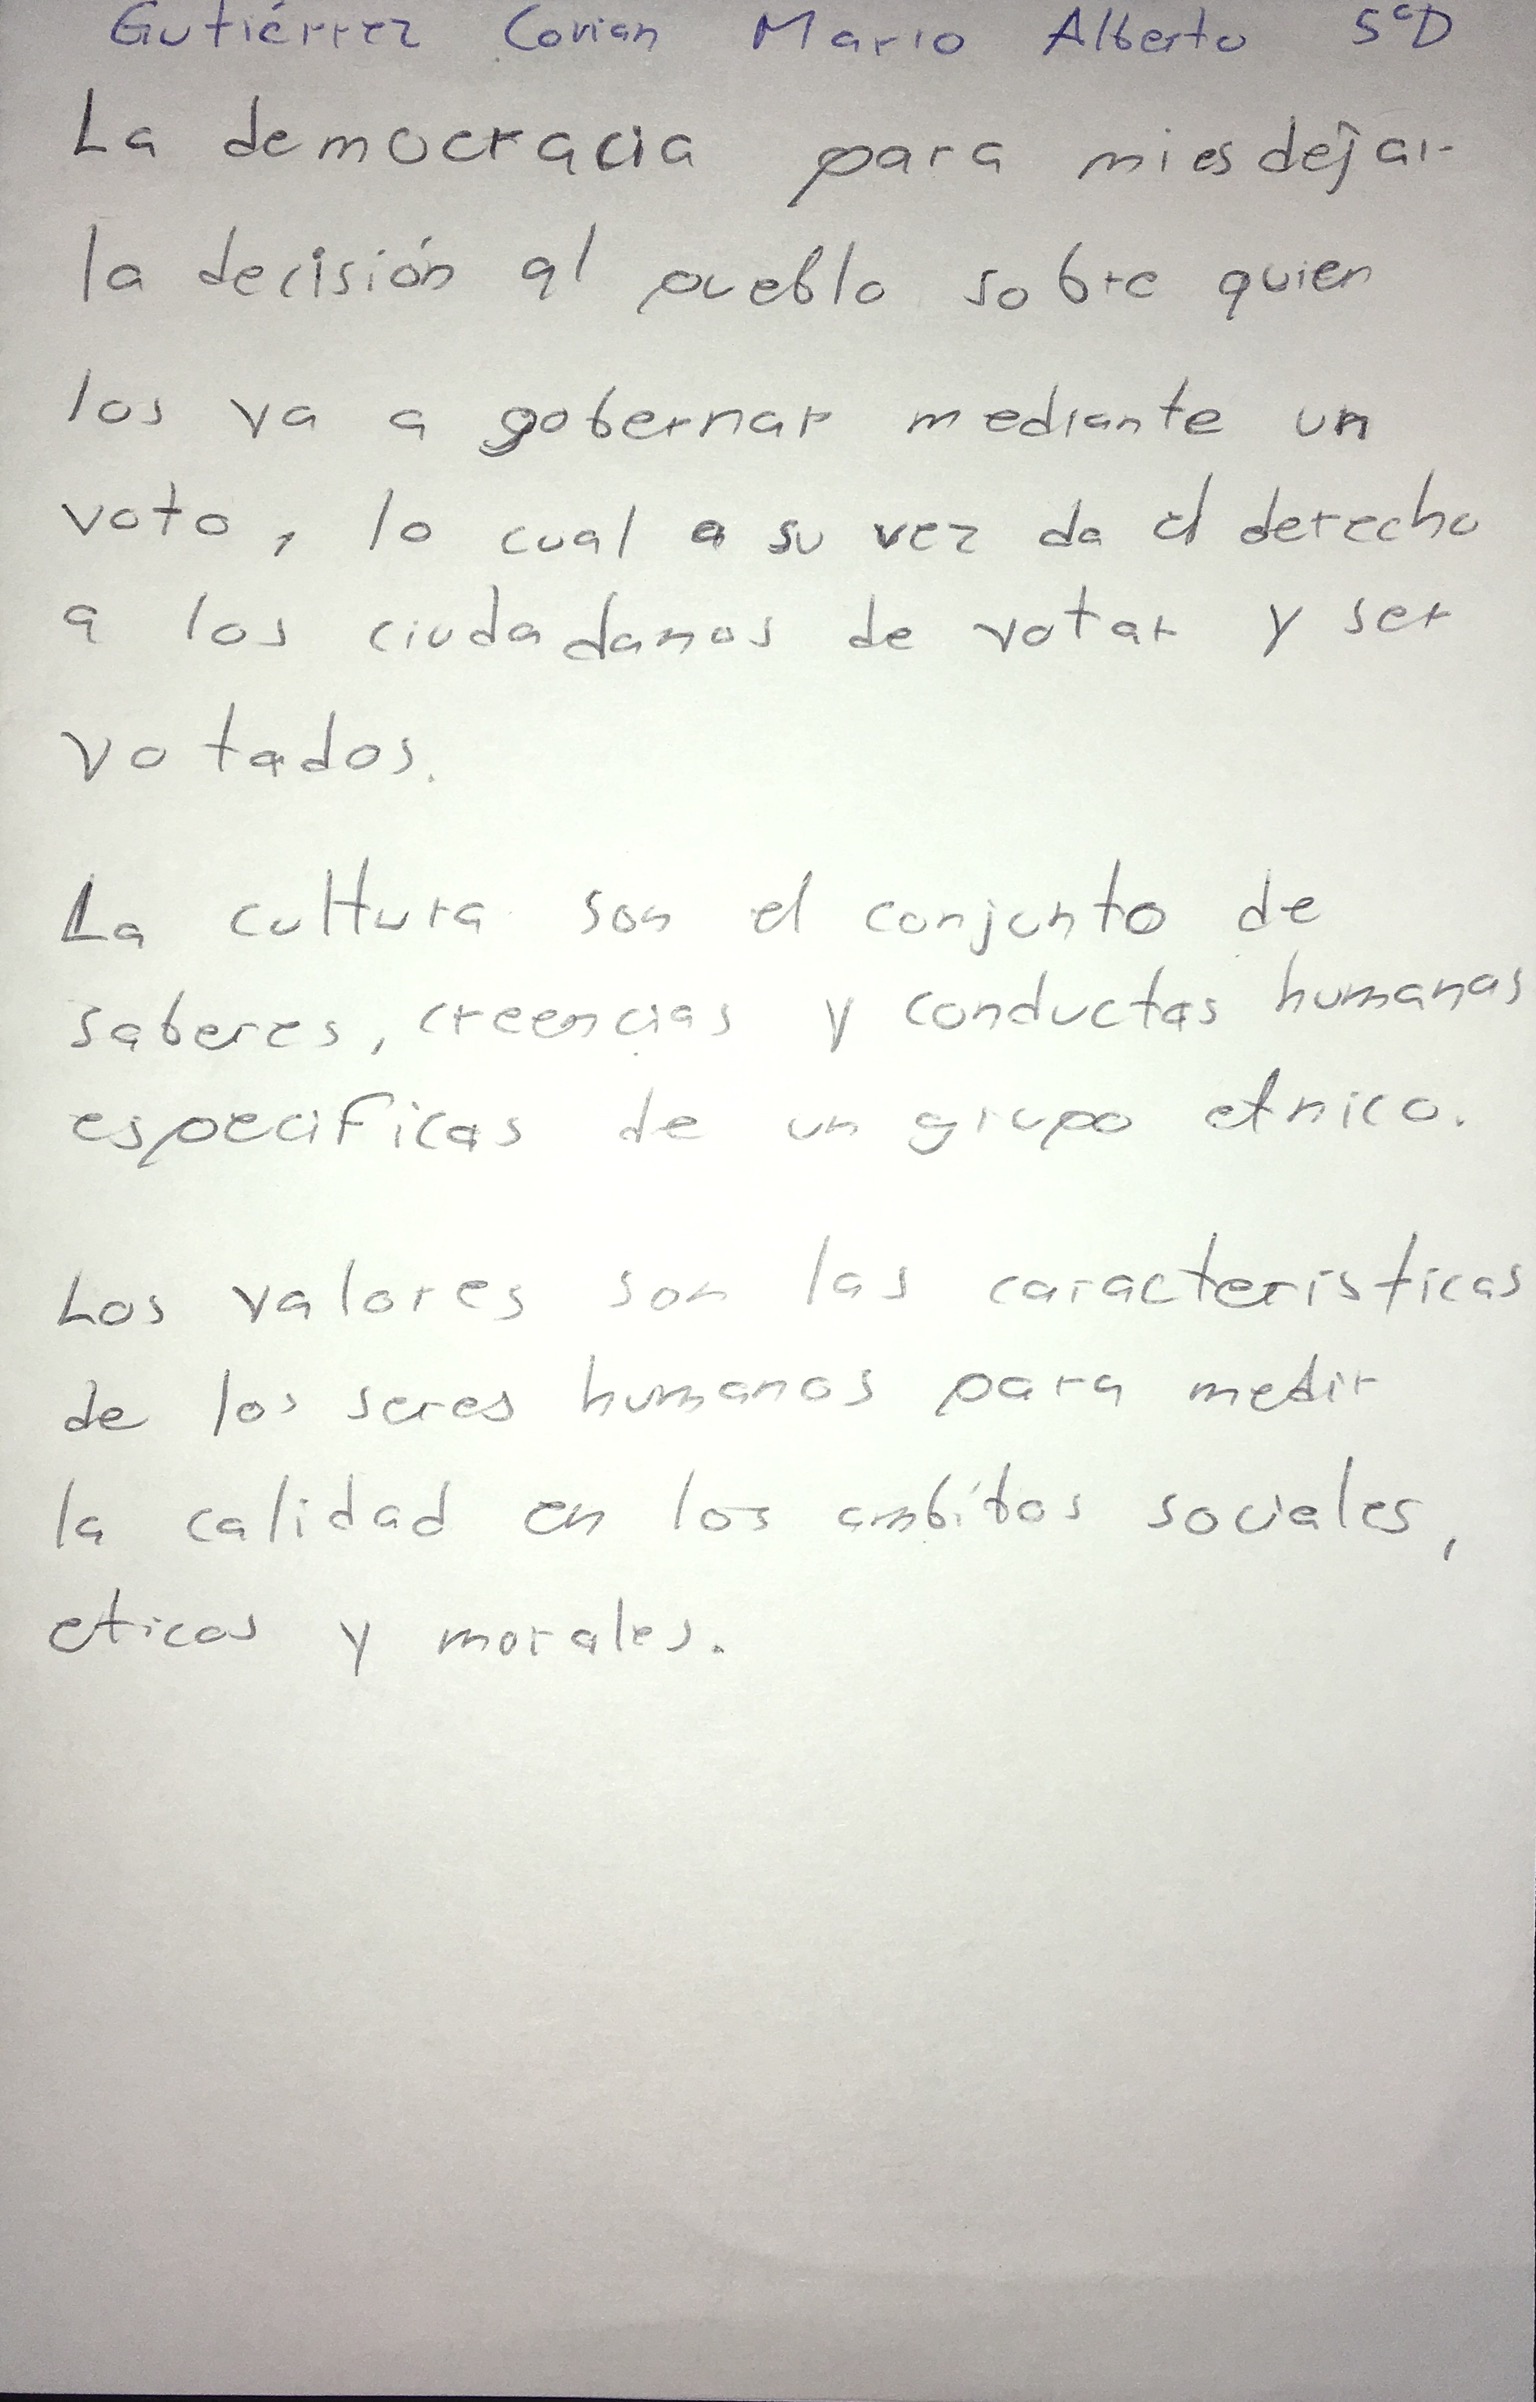 Gutiérrez Covian Mario Alberto 5°D
La democracia para mi es dejar
la decisión al pueblo sobre quien
los va a gobernar mediante un
voto, lo cual a su vez da el derecho
a los ciudadanos de votar y ser
votados.
La cultura son el conjunto de
saberes, creencias y conductas humanas
especificas de un grupo etnico.
Los valores son las caracteristicas
de los seres humanos para medir
la calidad en los ambitos sociales,
eticos y morales.